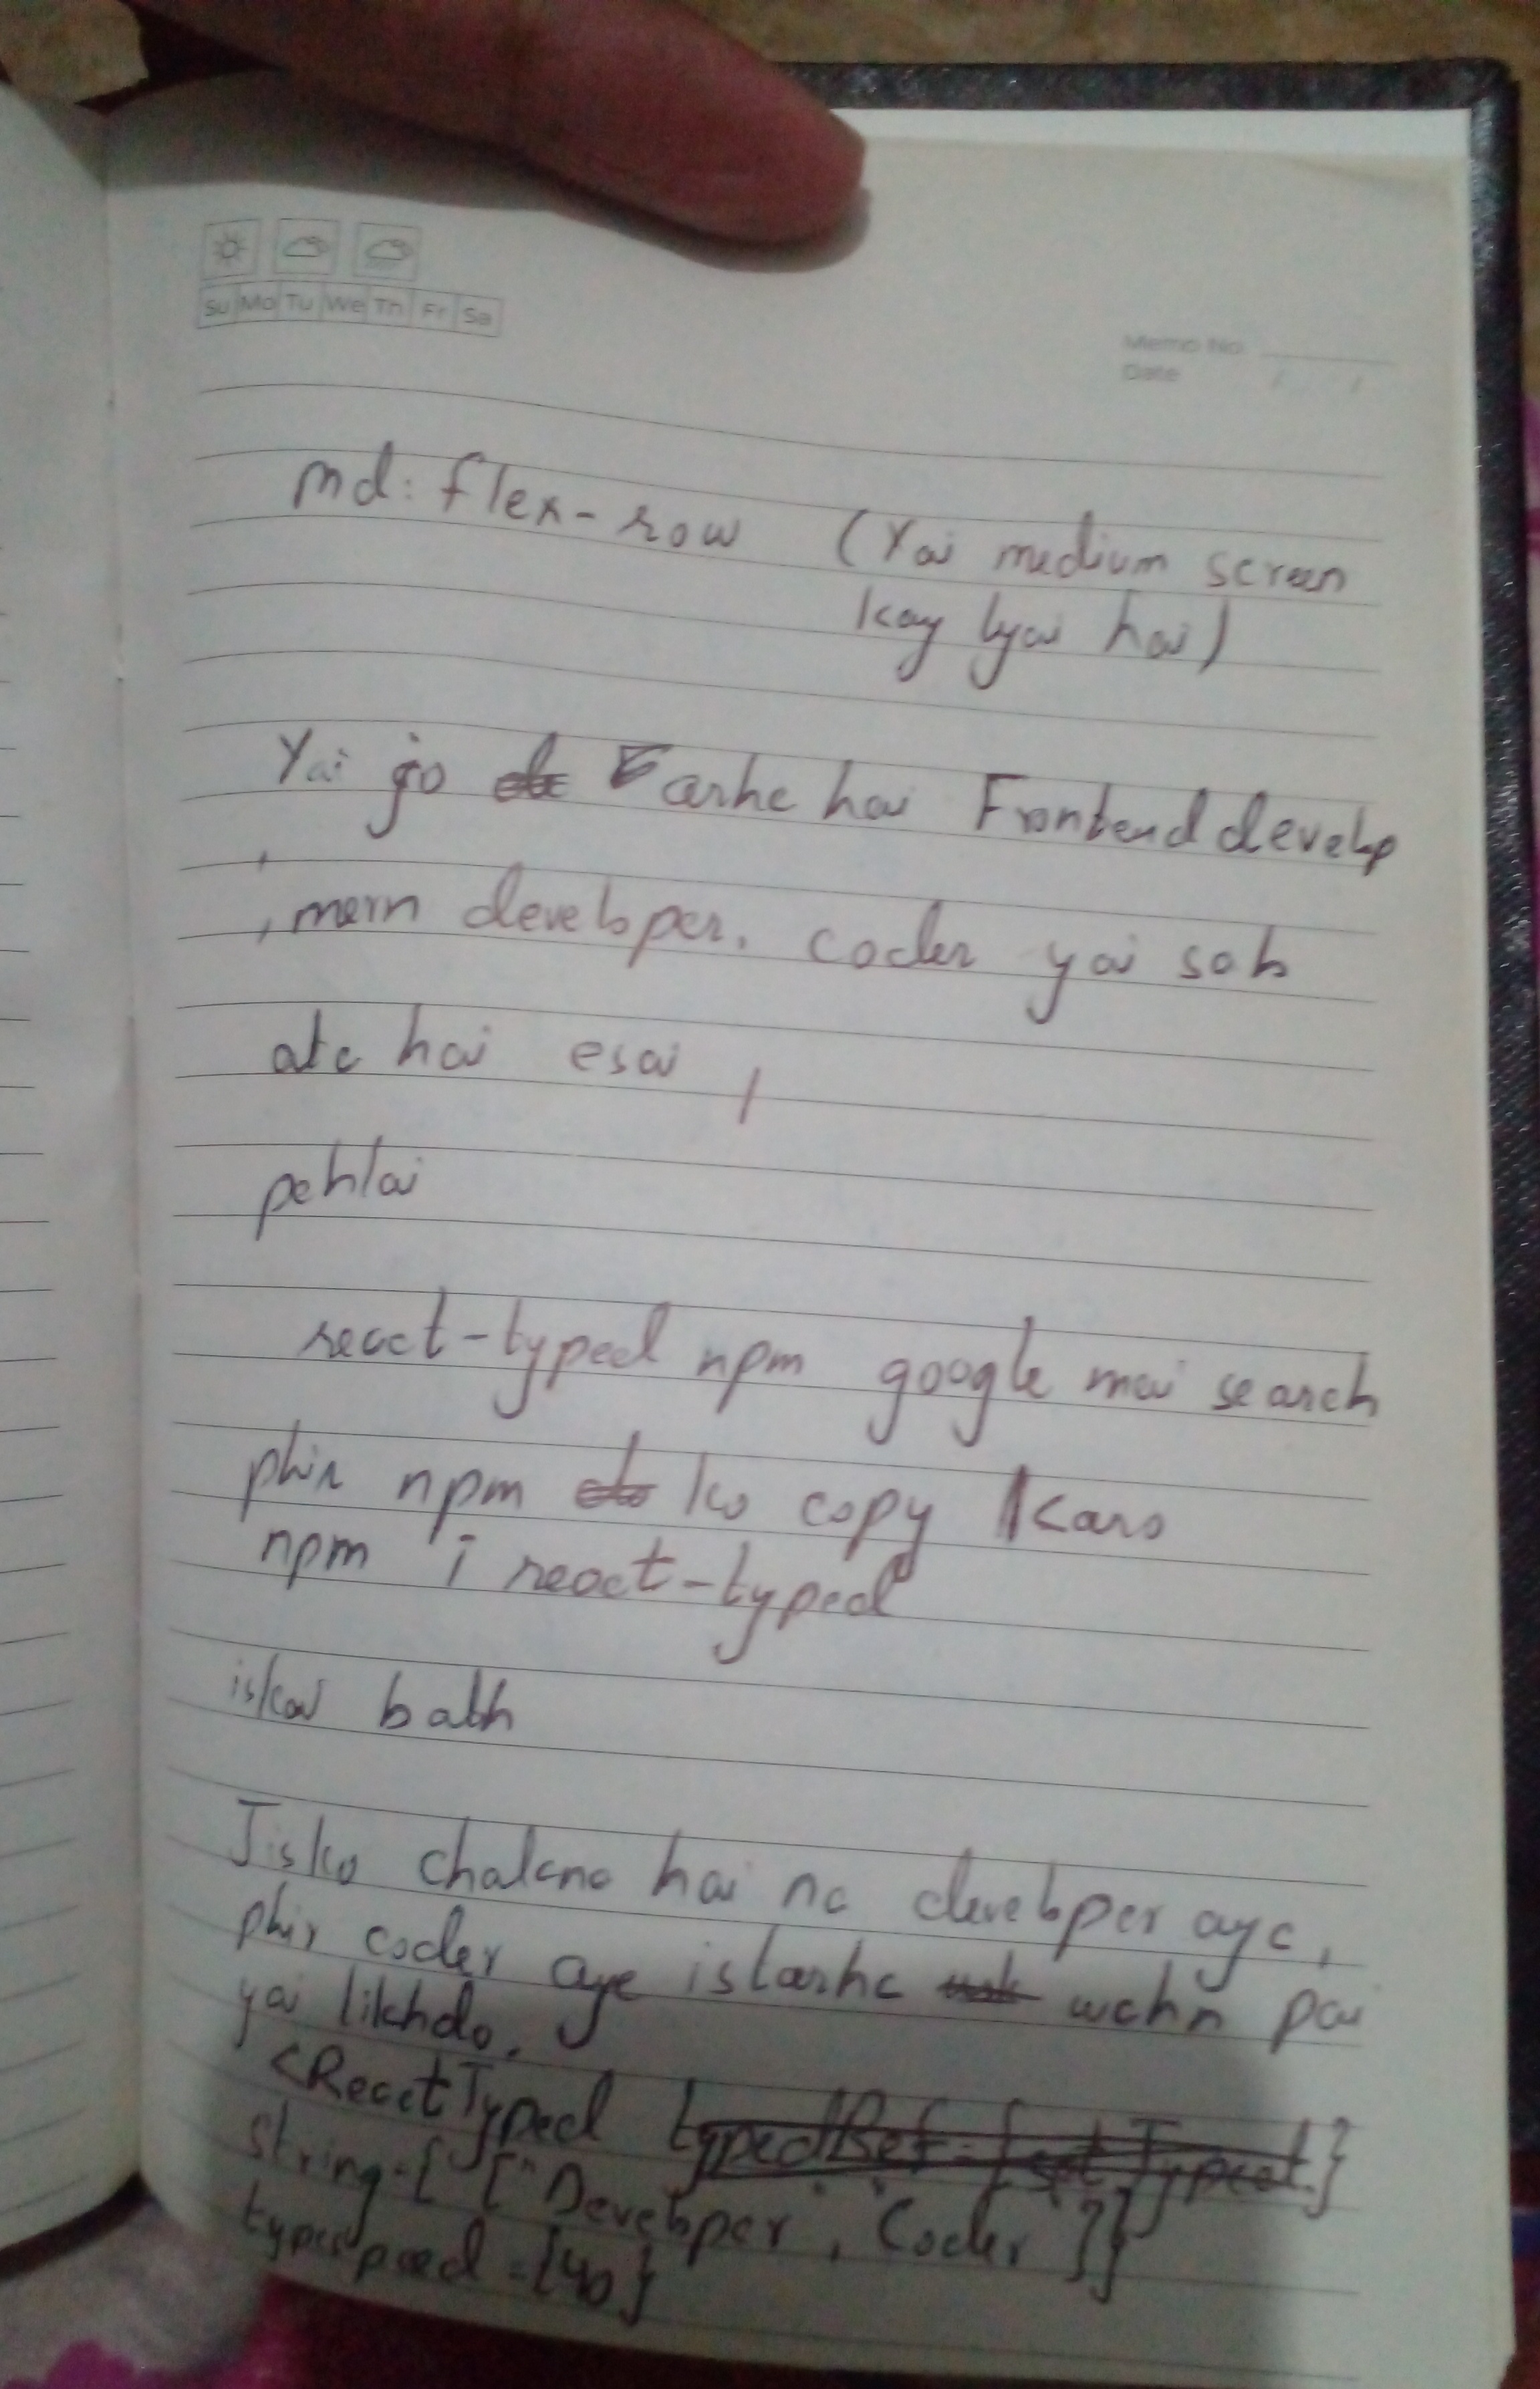 Su Mo Tu We Th Fr Sa
Memo No.
Date / /
md: flex-row (Yai medium screen
kay lyai hai)
Yai jo tarhe hai Frontend develop
, mern developer, coder yai sab
ate hai esai
pehlai
react-typed npm google mai search
phir npm ko copy karo
npm i react-typed
iskai bath
Jisko chalana hai na developer aye,
phir coder aye istarha wahn pai
yai likhdo.
<ReactTyped typedRef={setTyped}
string={["Developer", "Coder"]}
typespeed={40}